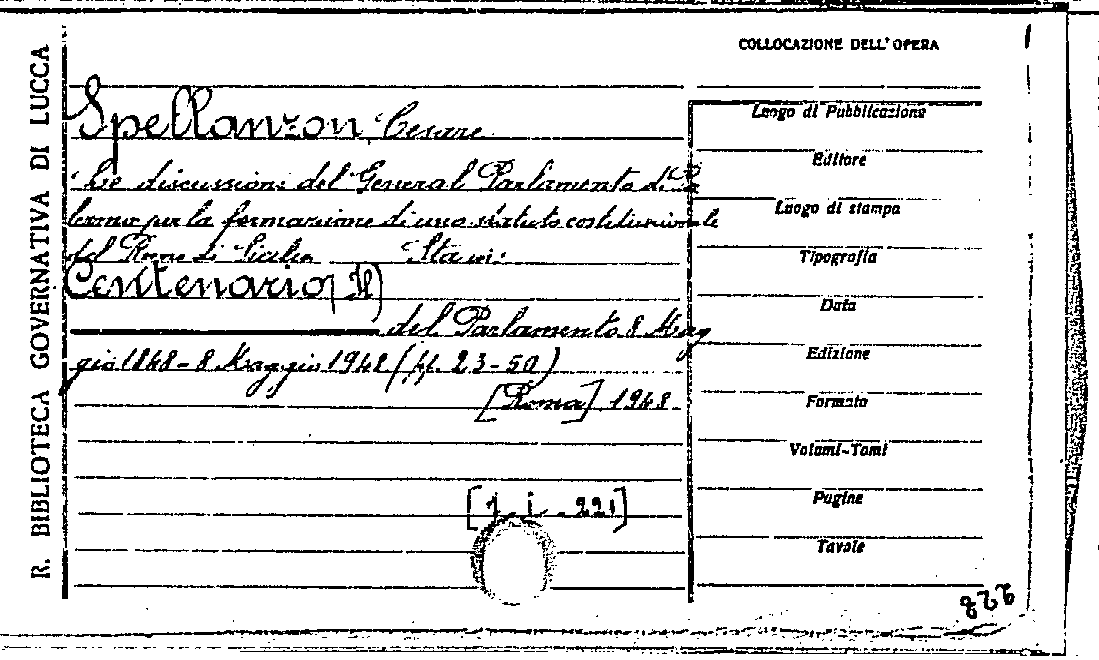 R. BIBLIOTECA GOVERNATIVA DI LUCCA
COLLOCAZIONE DELL'OPERA
Spellanzon, Cesare
Le discussioni del General Parlamento di Pa
lermo per la formazione di uno statuto costituzionale
del Regno di Sicilia
Centenario (Il)
del Parlamento 8 Mag
gio 1848 - 8 Maggio 1948 (pp. 23-50)
[Roma] 1948
[1. i. 221]
Luogo di Pubblicazione
Editore
Luogo di stampa
Tipografia
Data
Edizione
Formato
Volumi-Tomi
Pagine
Tavole
228